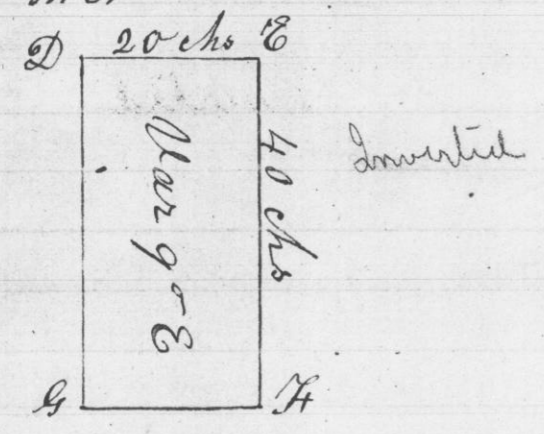 D 20 chs E
40 chs
Inverted
G H